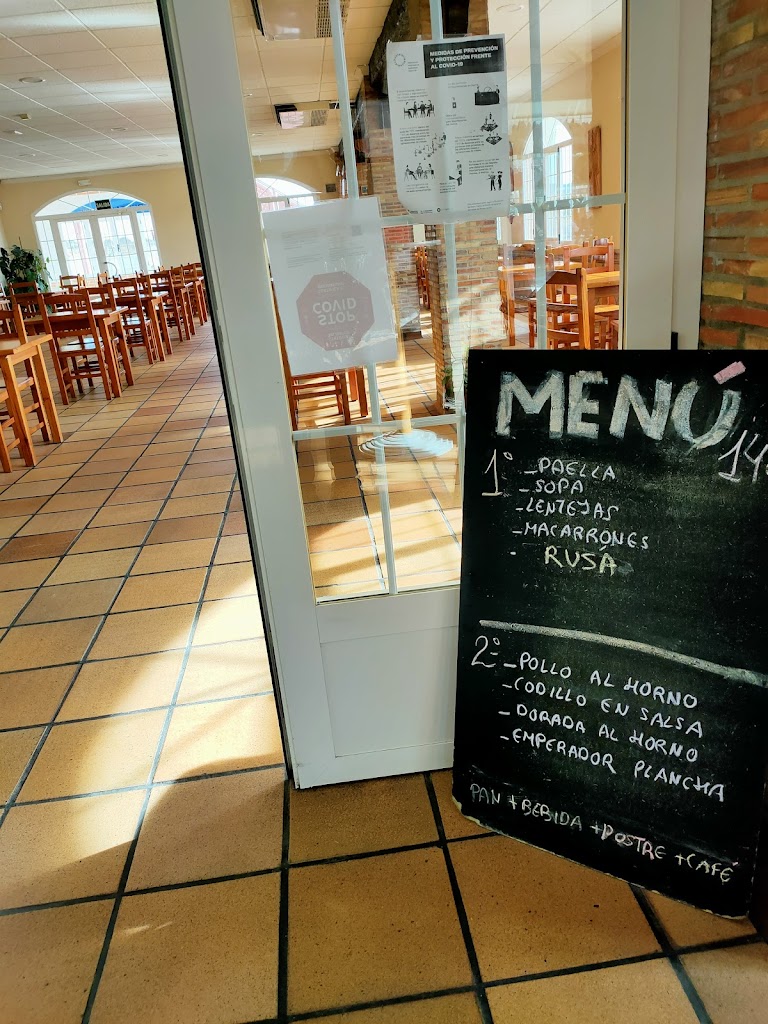 SALIDA
MEDIDAS DE PREVENCIÓN
Y PROTECCIÓN FRENTE
AL COVID-19
STOP
COVID
MENÚ
14
1º - PAELLA
- SOPA
- LENTEJAS
- MACARRONES
- RUSA
2º - POLLO AL HORNO
- CODILLO EN SALSA
- DORADA AL HORNO
- EMPERADOR PLANCHA
PAN + BEBIDA + POSTRE + CAFÉ